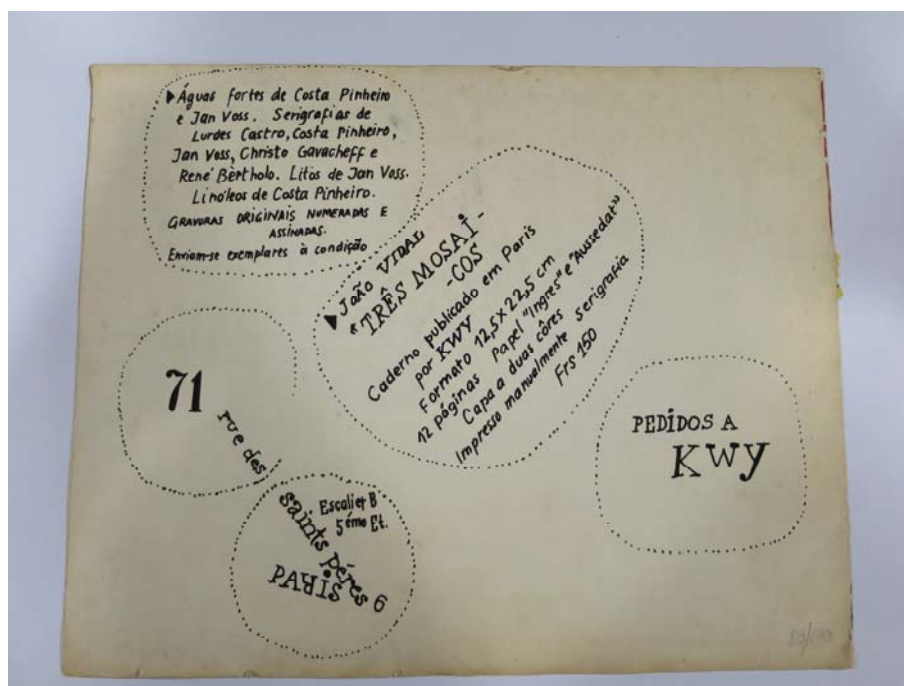 ▶Águas fortes de Costa Pinheiro
e Jan Voss. Serigrafias de
Lurdes Castro, Costa Pinheiro,
Jan Voss, Christo Gavacheff e
René Bèrtholo. Litos de Jan Voss.
Linóleos de Costa Pinheiro.
GRAVURAS ORIGINAIS NUMERADAS E
ASSINADAS.
Enviam-se exemplares à condição
▶JOÃO VIDAL
"TRÊS MOSAÏ-
-COS"
Caderno publicado em Paris
por KWY
Formato 12,5x22,5 cm
12 páginas Papel "Ingres" e "Aussedat"
Capa a duas côres
Impresso manualmente serigrafia
Frs 150
71
rue des
saints pères
Escalier B
5éme Et.
PARIS 6
PEDIDOS A
KWY